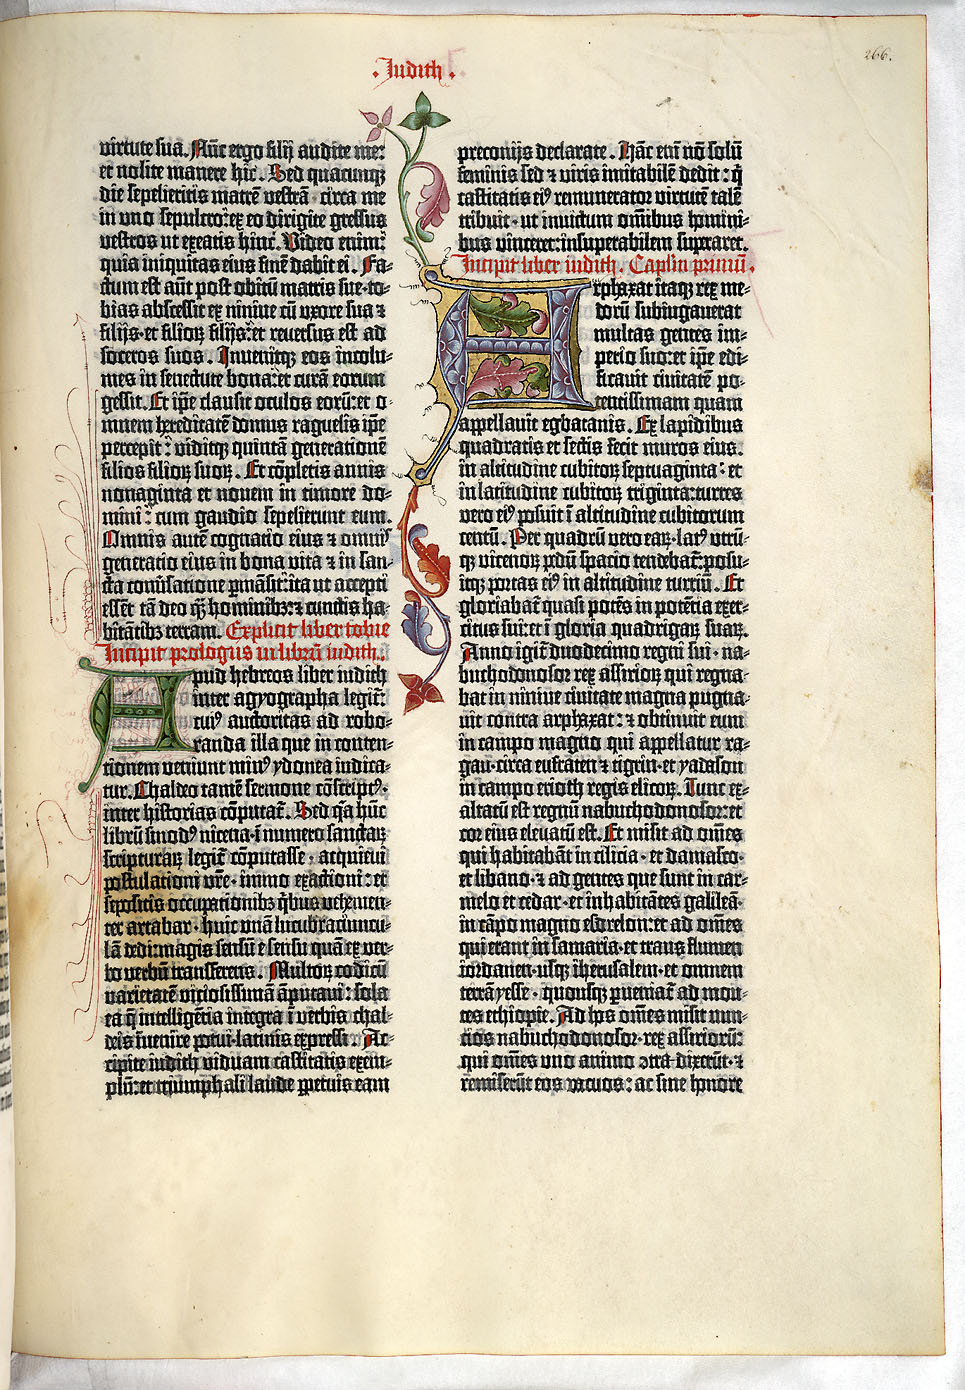 ·Judith·
266.
virtute sua. Nūc ergo filij audite me:
et nolite manere hic. Sed quacunqꝫ
die sepelieritis matrē vestrā · circa me
in uno sepulcro: ex eo dirigite gressus
vestros ut exeatis hinc. Video enim:
quia iniquitas eius finē dabit ei. Fa-
ctum est aūt post obitū matris sue · to-
bias abscessit ex ninive cū uxore sua ⁊
filijs · et filioꝝ filijs: et reversus est ad
soceros suos. Invenitqꝫ eos incolu-
mes in senectute bona: et curā eorum
gessit. Et ip̄e clausit oculos eorū: et o-
mnem hereditatē domus raguelis ip̄e
percepit: viditqꝫ quintā generationē
filios filioꝝ suoꝝ. Et cōpletis annis
nonaginta et novem in timore do-
mini: cum gaudio sepelierunt eum.
Omnis autē cognatio eius ⁊ omnis
generatio eius in bona vita ⁊ in san-
cta cōūsatione ꝑmāsit: ita ut accepti
essēt tā deo q̄ꝫ hominibꝫ: ⁊ cunctis ha-
bitātibꝫ terram. Explicit liber tobie
Incipit prologus in librū iudith.
Apud hebreos liber iudith
inter agyographa legit̄:
cuiꝰ auctoritas ad robo-
randa illa que in conten-
tionem veniunt minꝰ ydonea iudica-
tur. Chaldeo tamē sermone cōscriptꝰ ·
inter historias cōputat̄. Sed q̄a hūc
librū sinodꝰ nicena · ī numero sanctaꝝ
scripturaꝝ legit̄ cōputasse · acquievi
postulationi vr̄e · immo exactioni: et
sepositis occupationibꝫ q̄bus vehemen-
ter artabar · huic unā lucubratiuncu-
lā dedi: magis sensū e sensu quā ex ver-
bo verbū transferens. Multoꝝ codicū
varietatē viciosissimā āputavi: sola
ea q̄ intelligētia integra ī verbis chal-
deis īvenire potui · latinis expressi. Ac-
cipite iudith viduam castitatis exem-
plū: et triumphali laude ꝑpetuis eam
preconijs declarate. Hāc em̄ nō solū
feminis sed ⁊ viris imitabilē dedit: q̄
castitatis eiꝰ remunerator virtutē talē
tribuit · ut invictum om̄ibus homini-
bus vinceret: insuperabilem supraret.
Incipit liber iudith. Caplm primū.
Arphaxat itaqꝫ rex me-
dorū subiugaverat
multas gentes im-
perio suo: et ip̄e edi-
ficavit civitatē po-
tentissimam quam
appellavit egbatanis. Ex lapidibus
quadratis et sectis fecit muros eius ·
in altitudine cubitoꝝ septuaginta: et
in latitudine cubitoꝝ triginta: turres
vero eiꝰ posuit ī altitudine cubitorum
centū. Per quadrū vero eaꝝ · latꝰ utrū-
qꝫ vicenoꝝ pedū spacio tendebat̄: posu-
itqꝫ portas eiꝰ in altitudine turriū. Et
gloriabat̄ quasi potēs in potētia exer-
citus sui: et ī gloria quadrigaꝝ suaꝝ.
Anno igit̄ duodecimo regni sui · na-
buchodonosor rex assirioꝝ qui regna-
bat in ninive civitate magna pugna-
vit contra arphaxat: ⁊ obtinuit eum
in campo magno qui appellatur ra-
gau · circa eufraten ⁊ tigrin · et yadason
in campo erioth regis elicoꝝ. Tunc ex-
altatū est regnū nabuchodonosor: et
cor eius elevatū est. Et misit ad om̄es
qui habitabāt in cilicia · et damasco ·
et libano · ⁊ ad gentes que sunt in car-
melo et cedar · et inhabitātes galileā ·
in cāpo magno esdrelon: et ad om̄es
qui erant in samaria · et trans flumen
iordanen · usqꝫ iherusalem · et omnem
terrā yesse · quousqꝫ ꝑveniat̄ ad mon-
tes ethiopie. Ad hos om̄es misit nun-
cios nabuchodonosor · rex assiriorū:
qui om̄es uno animo ꝯtradixerūt · ⁊
remiserūt eos vacuos: ac sine honore